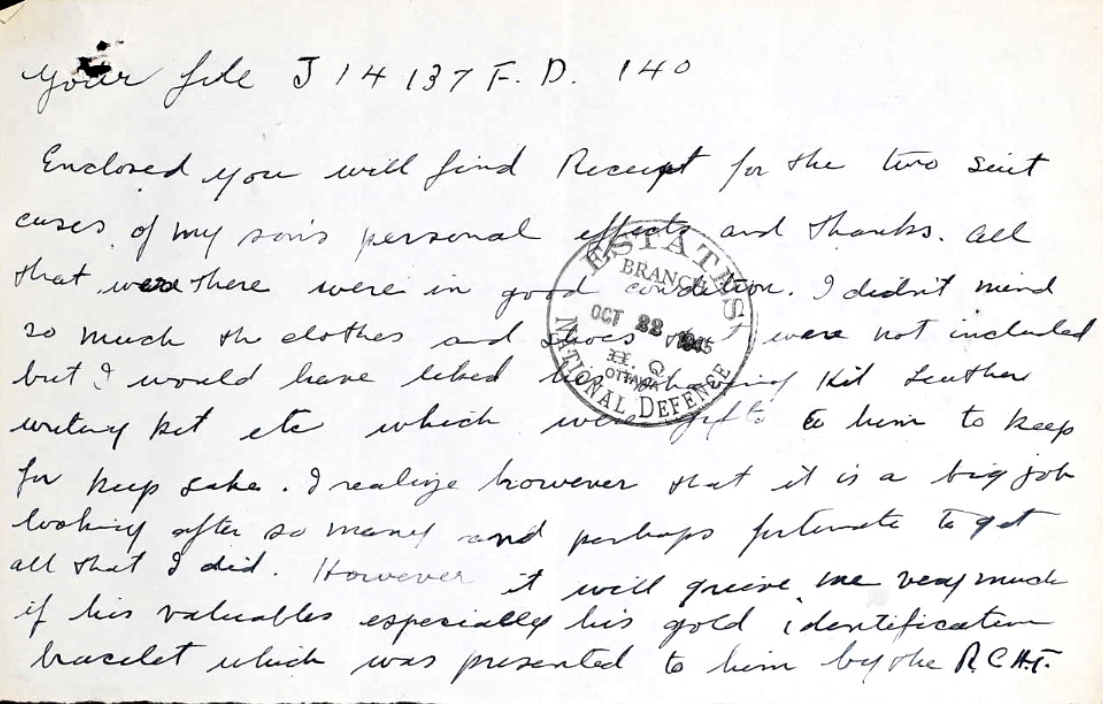 your file J 14137 F. D. 140
Enclosed you will find Receipt for the two suit
cases of my son's personal effects and thanks. all
that were there were in good condition. I didn't mind
so much the clothes and shoes that were not included
but I would have liked his shaving Kit Leather
writing kit etc which were gifts to him to keep
for keep sake. I realize however that it is a big job
looking after so many and perhaps fortunate to get
all that I did. However it will grieve me very much
if his valuables especially his gold identification
bracelet which was presented to him by the
ESTATES
BRANCH
OCT 22 1945
H. Q.
OTTAWA
NATIONAL DEFENCE